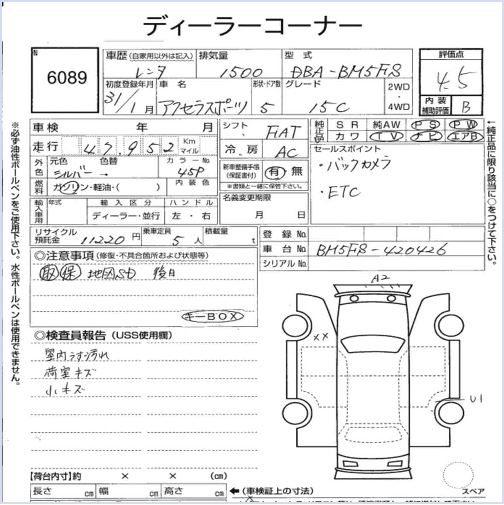 ディーラーコーナー
N
6089
車歴 (自家用以外は記入)
レンタ
排気量
1500
型式
DBA-BM5FS
評価点
4.5
内装
補助評価
B
初度登録年月
31/1月
車名
アクセラスポーツ
形状・ドア数
5
グレード
15C
2WD
・
4WD
車検 年 月
走行 47,952 Km マイル
シフト
FAT
冷房
AC
純正品
SR 純AW PS PW
カワ TV ナビ エアB
外色
元色
シルバー
色替
カラーNo
45P
燃料
ガソリン・軽油・( )
内装色
新車整備手帳
(保証書付)
有・無
※書類と一緒に保管下さい。
セールスポイント
・バックカメラ
・ETC
輸入車用
年式
輸入区分
ディーラー・並行
ハンドル
左・右
名義変更期限
月 日
リサイクル
預託金
11220円
乗車定員
5人
積載量
t
登録No
車台No
BM5FS-420426
シリアルNo
◎注意事項 (修復・不具合箇所および状態等)
取 保 地図SD 後日
キーBOX
◎検査員報告 (USS使用欄)
室内うす汚れ
荷室キズ
小キズ
A2
××
U1
【荷台内寸】約 × × (cm)
長さ cm 幅 cm 高さ cm
←(車検証上の寸法)
スペア
※必ず油性ボールペンをご使用下さい。水性ボールペンは使用できません。
←純正品に限り該当に○をつけて下さい。